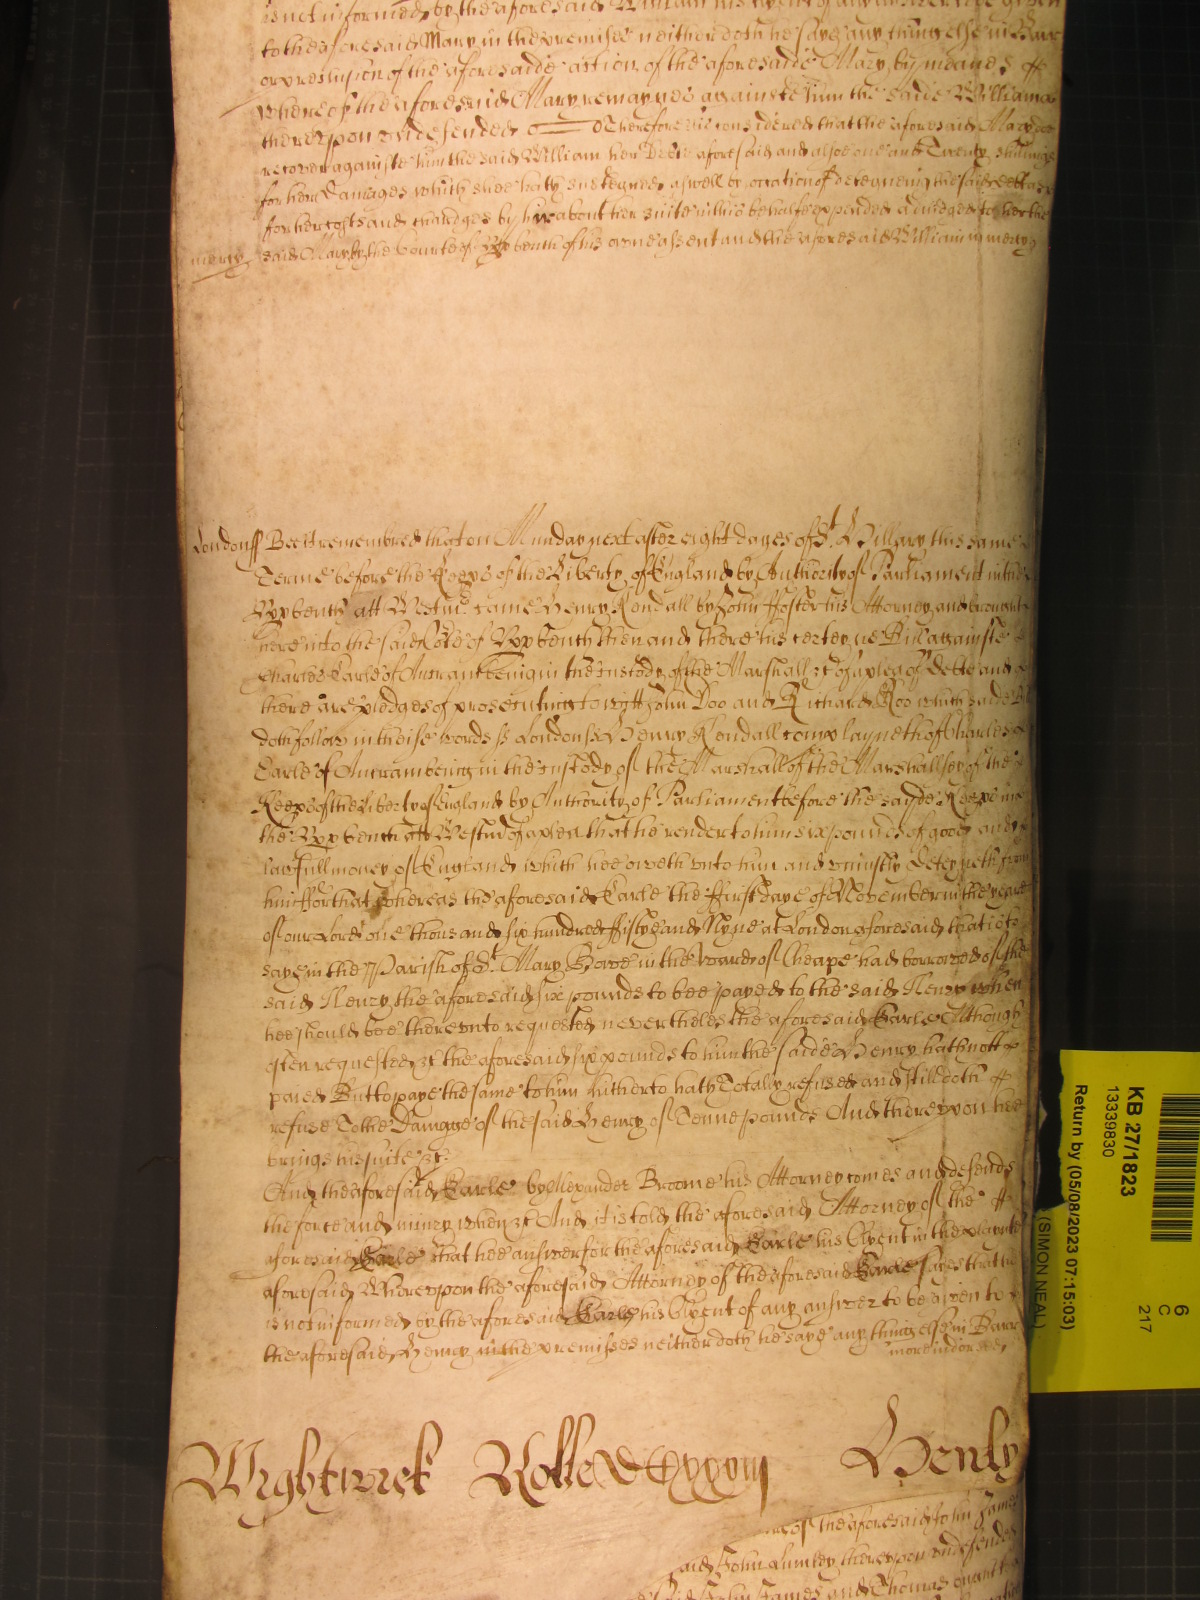 is not informed by the aforesaid William his Clyent of any answer to be given
to the aforesaid Mary in the premises neither doth he saye any thing else in Barr
or preclusion of the aforesaide action of the aforesaide Mary by meanes
whereof the aforesaid Mary remaynes againste him the saide William
thereupon undefended Therefore it is considered that the aforesaid Mary doe
recover againste him the said William her Debte aforesaid and alsoe one and Twenty shillings
for her Damages which shee hath susteyned aswell by occation of deteyneing the said Debt as
for her costs and chardges by her about her suite in this behalfe expended adiudged to her the
said Mary by the Courte of Upp bench of his owne assent and the aforesaid William in mercy
mercy
London ss Bee it remembred that on Munday next after eight dayes of St Hillary this same
Terme before the Keeps of the Liberty of England by Authority of Parliament in the
Upp bench att Westmr came Henry Kendall by John Foster his Attorney and brought
here into the said Cote of Upp bench then and there his certeyne Bill againste
Charles Earle of Antram being in the custody of the Marshall &c of a plea of Debte and
there are pledges of prosecuting to witt John Doo and Richard Roo which said Bill
doth follow in theise words ss London ss Henry Kendall complayneth of Charles
Earle of Antram being in the custody of the Marshall of the Marshallsey of the
Keeps of the liberty of England by Authority of Parliament before the sayde Keeps in
the Upp bench att Westmr of a plea that he render to him six pounds of good and
lawfull money of England which hee oweth unto him and uniustly deteyneth from
him For that whereas the aforesaid Earle the first daye of November in the yeare
of our Lord one thousand six hundred fiftye and Nyne at London aforesaid that is to
saye in the Parish of St Mary Bowe in the warde of Cheape had borrowed of the
said Henry the aforesaid six pounds to bee payed to the said Henry when
hee should bee thereunto requested nevertheles the aforesaid Earle Although
often requested &c the aforesaid six pounds to him the saide Henry hath nott
paied But to paye the same to him hitherto hath Totally refused and still doth
refuse To the Damage of the said Henry of Tenne pounds And thereupon hee
brings his suite &c
And the aforesaid Earle by Alexander Broome his Attorney comes and defends
the force and iniury when &c And it is told the aforesaid Attorney of the
aforesaid Earle that hee answer for the aforesaid Earle his Clyent in the plainte
aforesaid Whereupon the aforesaid Attorney of the aforesaid Earle sayes that he
is not informed by the aforesaid Earle his Clyent of any answer to be given to
the aforesaid Henry in the premisses neither doth he saye any thing else in Barr
more indorsed
Wightwick Rolle DCXXVIII Henly
of the aforesaid John James
said John Lumley thereupon undefended
said John James and Thomas
KB 27/1823
13339830
Return by (05/08/2023 07:15:03)
(SIMON NEAL)
6
C
217